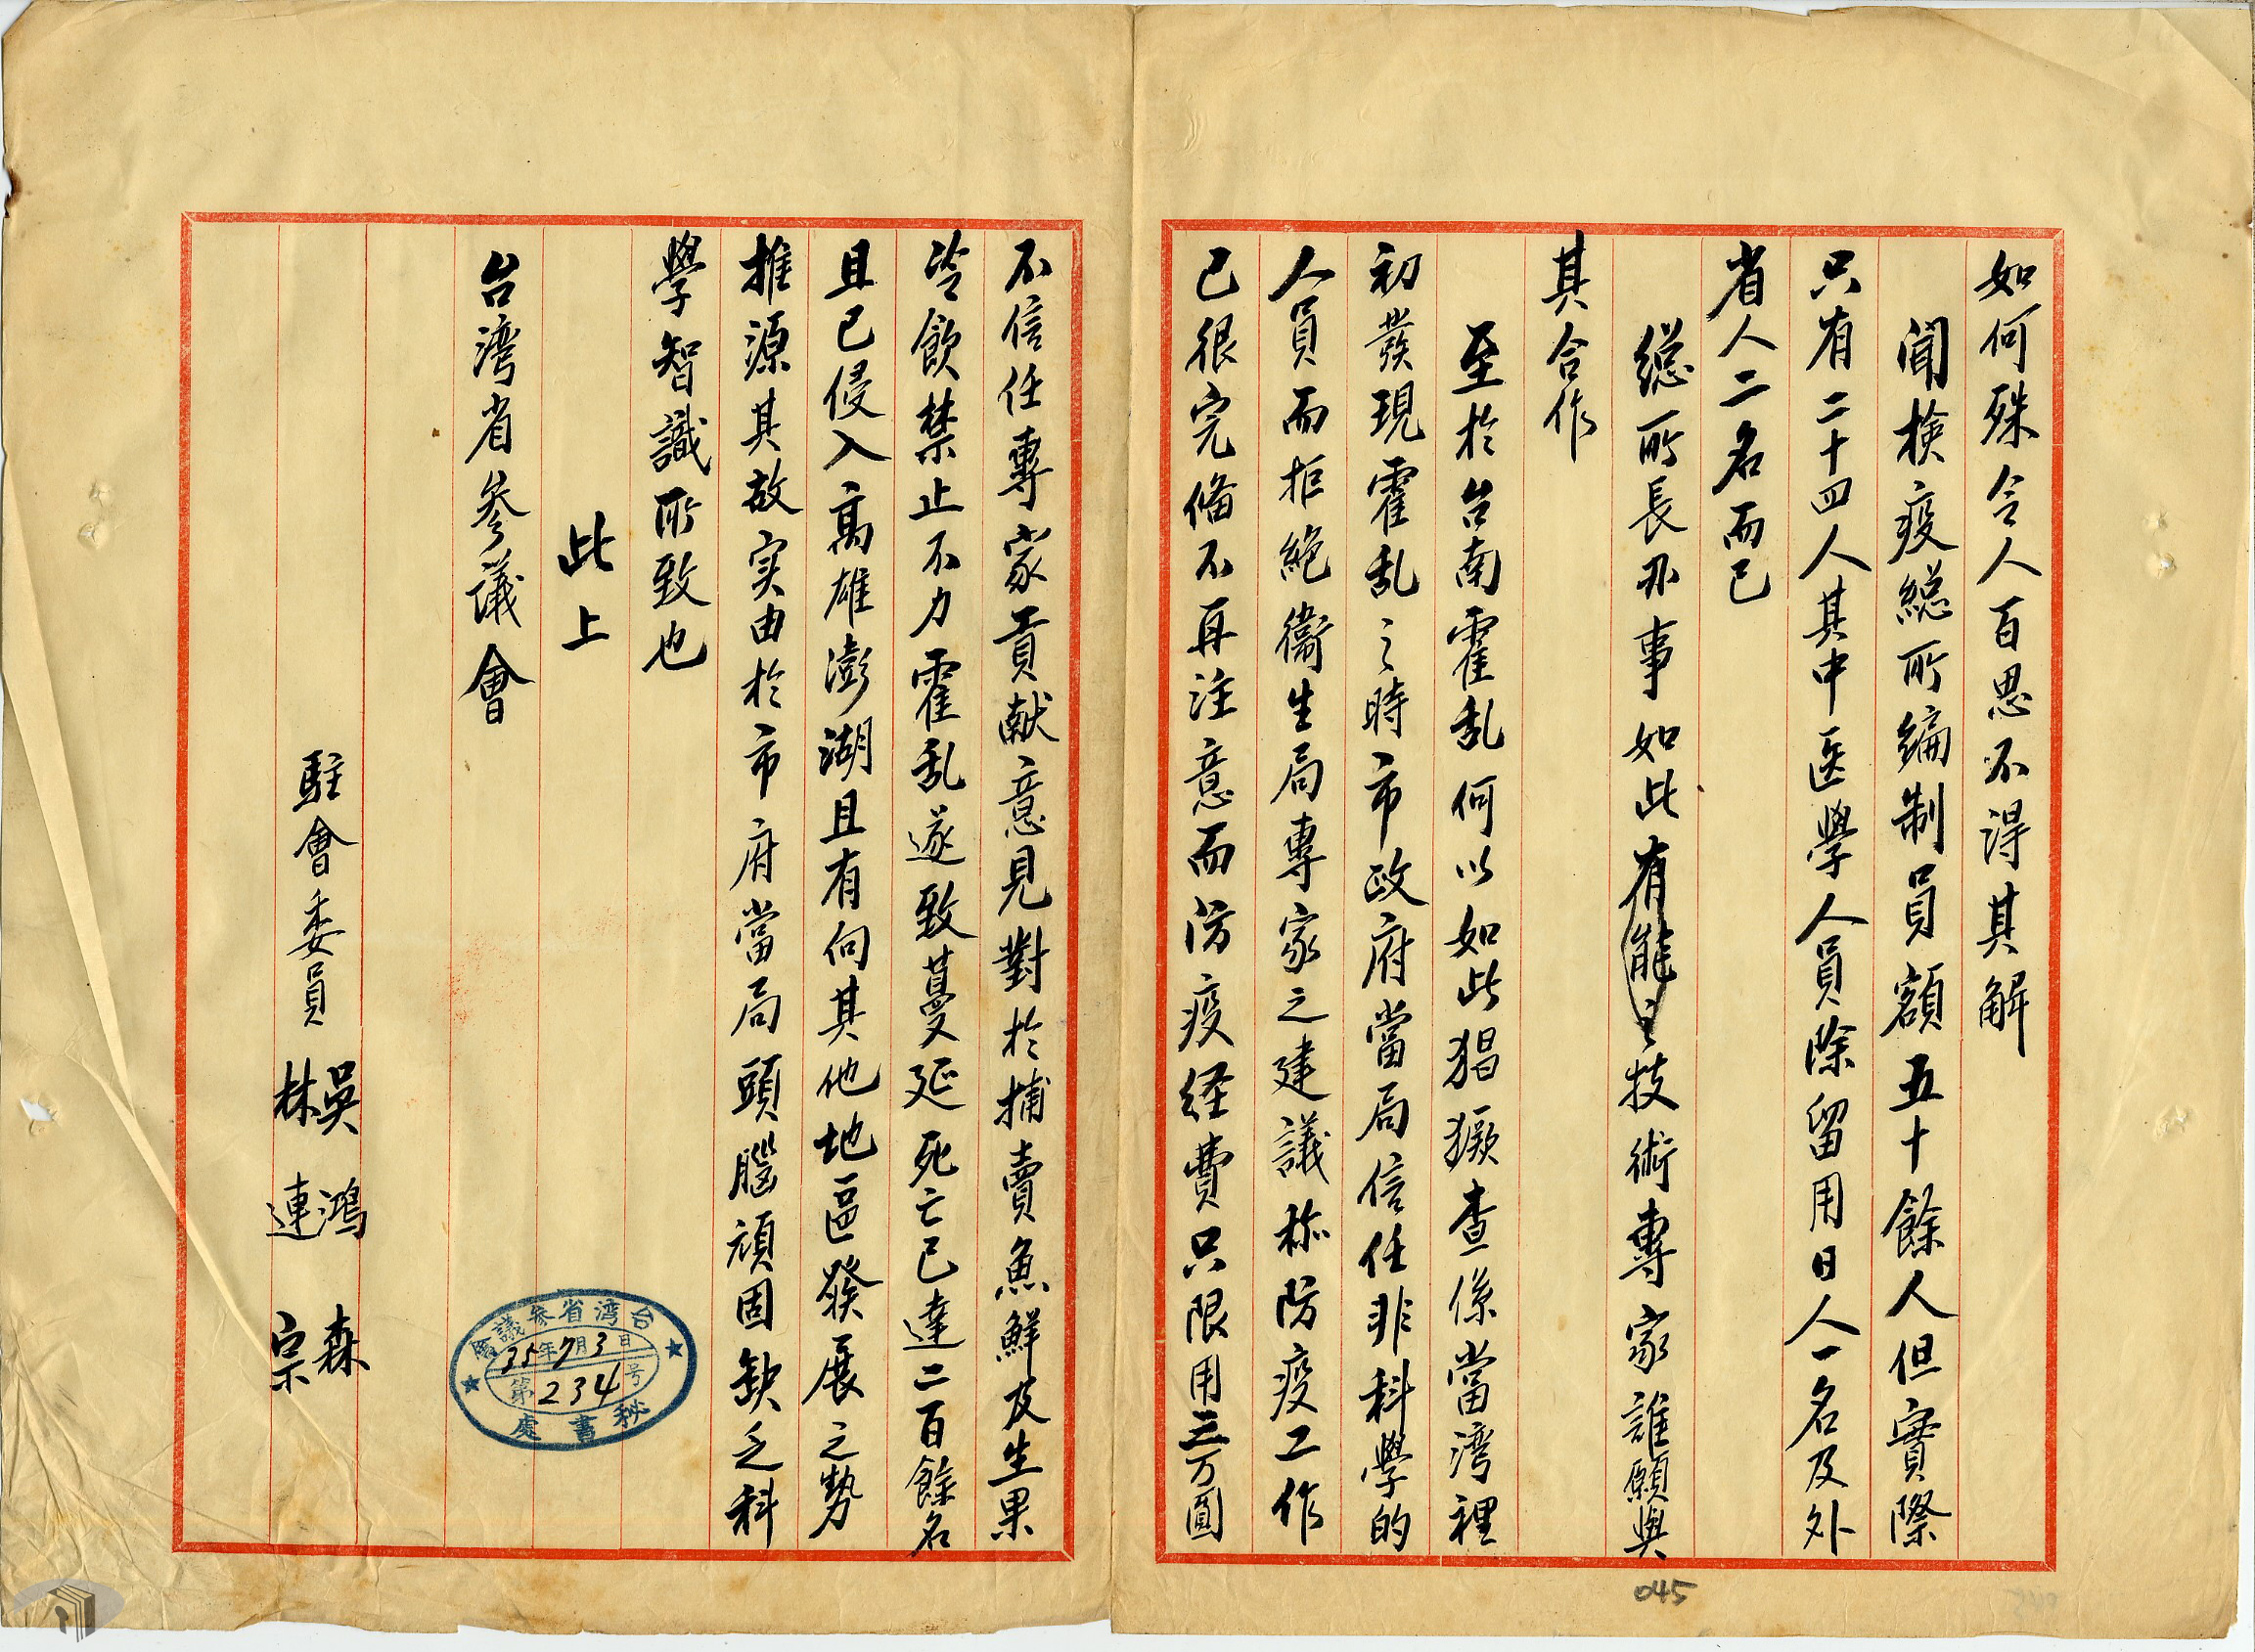 如何殊令人百思不得其解
聞檢疫総所編制員額五十餘人但實際
只有二十四人其中医學人員除留用日人一名及外
省人二名而已
総所長办事如此有能之技術專家誰願與
其合作
至於台南霍乱何以如此猖獗查係當湾裡
初發現霍乱之時市政府當局信任非科學的
人員而拒絶衞生局專家之建議称防疫工作
已很完俻不再注意而防疫经費只限用三万圓
不信任專家貢献意見對於捕賣魚鮮及生果
冷飲禁止不力霍乱遂致蔓延死亡已達二百餘名
且已侵入高雄澎湖且有向其他地區發展之勢
推源其故实由於市府當局頭腦頑固缺乏科
學智識所致也
此上
台湾省參議會
駐會委員
吳鴻森
林連宗
台湾省參議會
35年7月3日
第234号
秘書處
045